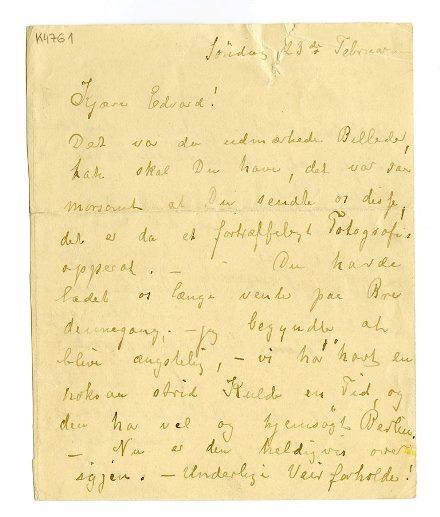 K4761
Søndag 23de Februar
Kjære Edvard!
Det var da udmærkede Billeder,
tak skal Du have, det var saa
morsomt at Du sendte os disse,
det er da et fortræffeligt Fotografi-
apparat. — - Du havde
ladet os længe vente paa Brev
dennegang, — jeg begyndte at
blive ængstelig, — vi har havt en
noksaa strid Kulde en Tid, og
den har vel og hjemsøgt Berlin.
— Nu er den heldigvis over
igjen. — Underlige Veirforholde!